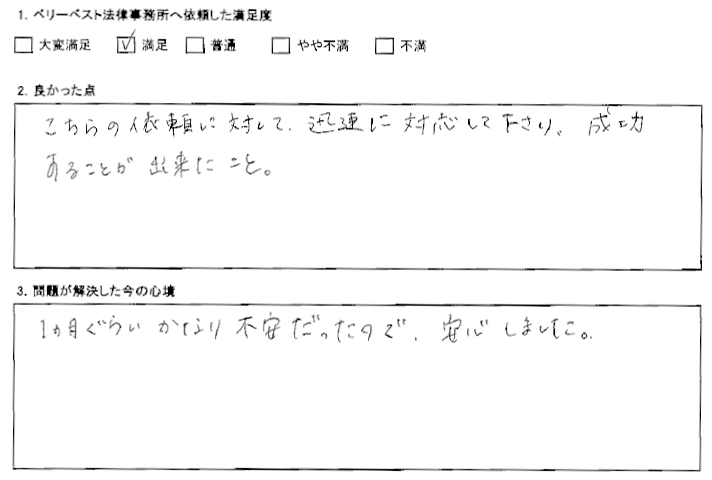 1. ベリーベスト法律事務所へ依頼した満足度
□ 大変満足 ☑ 満足 □ 普通 □ やや不満 □ 不満
2. 良かった点
こちらの依頼に対して、迅速に対応して下さり、成功
あることが出来たこと。
3. 問題が解決した今の心境
1ヵ月ぐらいかなり不安だったので、安心しました。